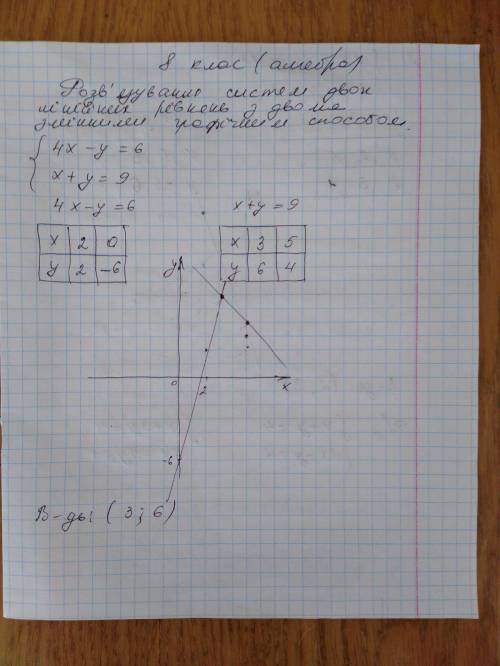 8 клас (алгебра)
Розв'язування систем двох
лінійних рівнень з двома
змінними графічним способом.
4x - y = 6
x + y = 9
4x - y = 6 x + y = 9
x 2 0 x 3 5
y 2 -6 y 6 4
y
0 2 x
-6
В-ды (3; 6)